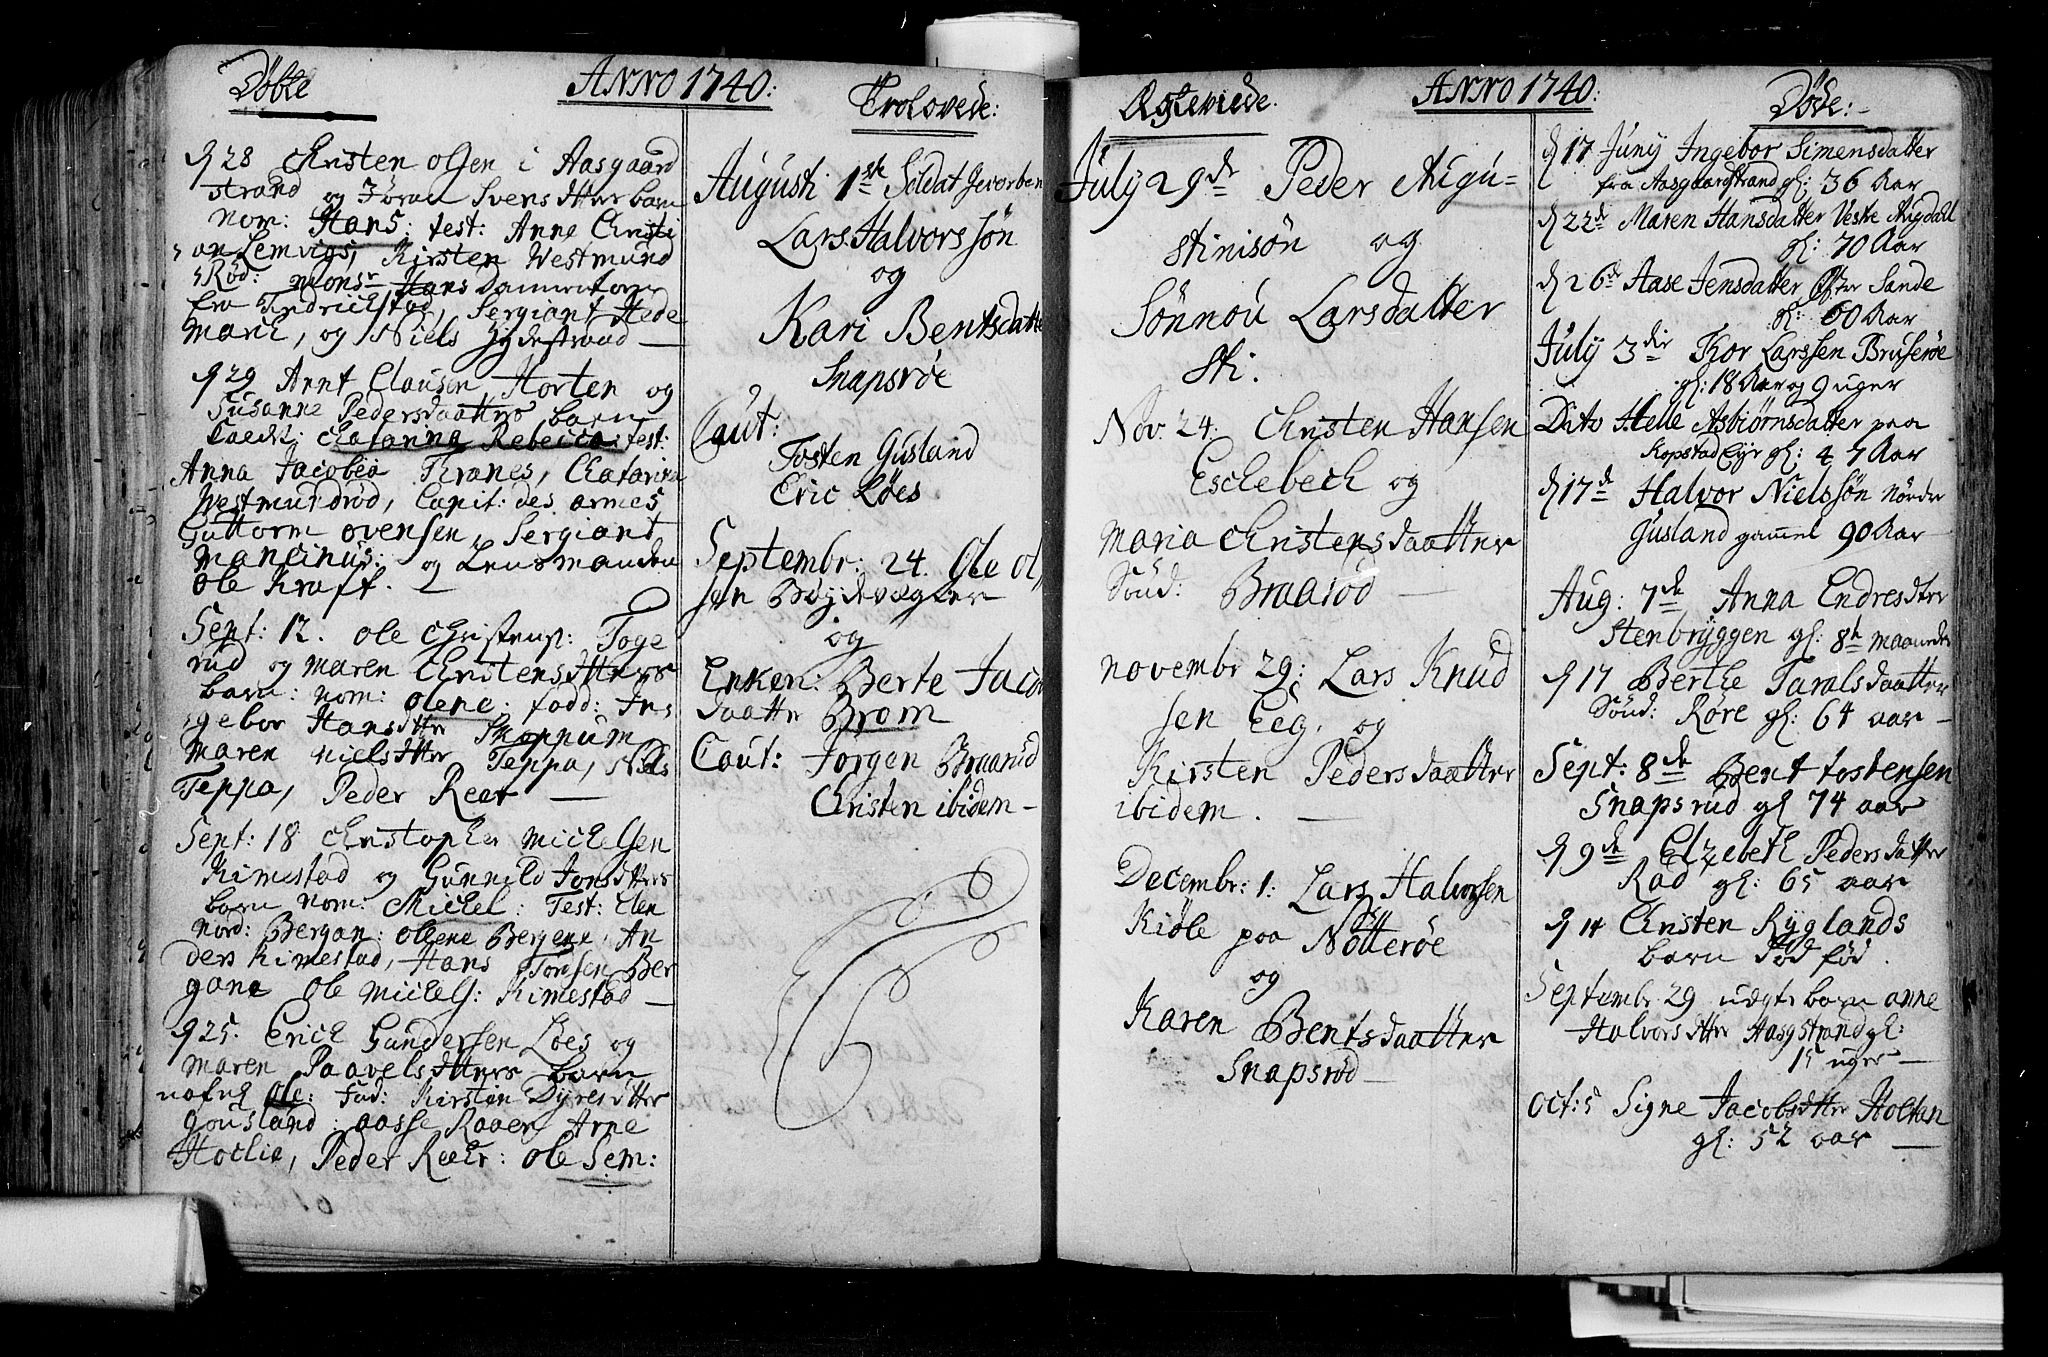 Døbte
Anno 1740:
Trolovede:
d 28 Christen Olsen i Aasgaard
strand og Jøran Svensdtter barn
nom: Hans: test: Anne Christi
an Lemvigs, Kirsten Westmund
Rød: Mons.r Hans
fra Fridrichstad, Sergiant Hede
mark, og Niels
d 29 Arnt Clausen Horten og
Susanne Pedersdaatters barn
Cath: Chatarina Rebecca: test:
Anna Jacobea Kranes, Chatarina
Westmundrød, Capit: des armes
Guttorm Ovensen, Sergiant
Mancinus: og Lensmanden
Ole Kraft.
Sept: 12. Ole Christens: Toge
rud og Maren Christensdtters
barn: nom: Olene: fadd: In
gebor Hansdtter Skoppum
Maren Nielsdtter Teppa, Niels
Teppa, Peder Reer —
Sept: 18 Christopher Michelsen
Kimestad og Gunnild Jonsdtters
barn nom: Michel: Test: Elen
Nord: Bergan: Olene Bergene, An
ders Kimestad, Hans Torsen Ber
gane Ole Michels: Kimestad —
d 25. Erich Gundersen Løes og
Maren Paavelsdtters barn
nafnl Ole: Fad: Kirsten Dyresdtter
Gousland: Aasse Raaen Arne
Hotlie, Peder Reer: Ole Sem:
Augusti 1ste Soldat Gevorben
Lars Halvorssøn
og
Kari Bentsdatter
Snapsrøe
Caut:
Tosten Gusland
Eric Løes
Septembr: 24. Ole Ol
sen Bøydevegler
og
Enken: Berte Jaco
daatter Brom
Caut: Jørgen Braarud
Christen ibidem —
Ægteviede.
Anno 1740:
Døde:
July 29de Peder Augu=
stinisøn og
Sønnou Larsdatter
Sti.
Nov: 24: Christen Hansen
Eschebech og
Maria Christensdaatter
Søud: Braarød —
Novembr 29: Lars Knud
sen Eeg, og
Kirsten Pedersdaatter
ibidem. —
Decembr: 1: Lars Halvorsen
Kiøle paa Nøtterøe
og
Karen Bentsdaatter
Snapsrød —
d 17 Juny Ingebor Simensdatter
fra Aasgaardstrand gl: 36 Aar
d 22de Maren Hansdatter Vestre Augdahl
gl: 70 Aar
d 26de Aase Jensdatter Øster Sande
gl: 60 Aar
July 3die Tor Larssen Bruserøe
gl: 18 Aar og 9 uger
Dito Helle Asbiørnsdatter paa
Kopstad Eyr gl: 47 Aar
d 17de Halvor Nielssøn Nordre
Gusland gammel 90 Aar
Aug: 7de Anna Endresdtter
Stenbryggen gl: 8te maaneder
d 17 Berthe Taralsdaatter
Søud: Røre gl: 64 aar —
Sept: 8de Bent Tostensen
Snapsrud gl 74 aar
d 9de Elzebeth Pedersdatter
Rød gl: 65 aar
d 14 Christen Ryglands
barn død fød.
Septembr. 29 udgte barn Anne
Halvorsdtter Aasgstrand gl:
15 uger —
Oct: 5 Signe Jacobsdtter Holtan
gl: 52 aar —